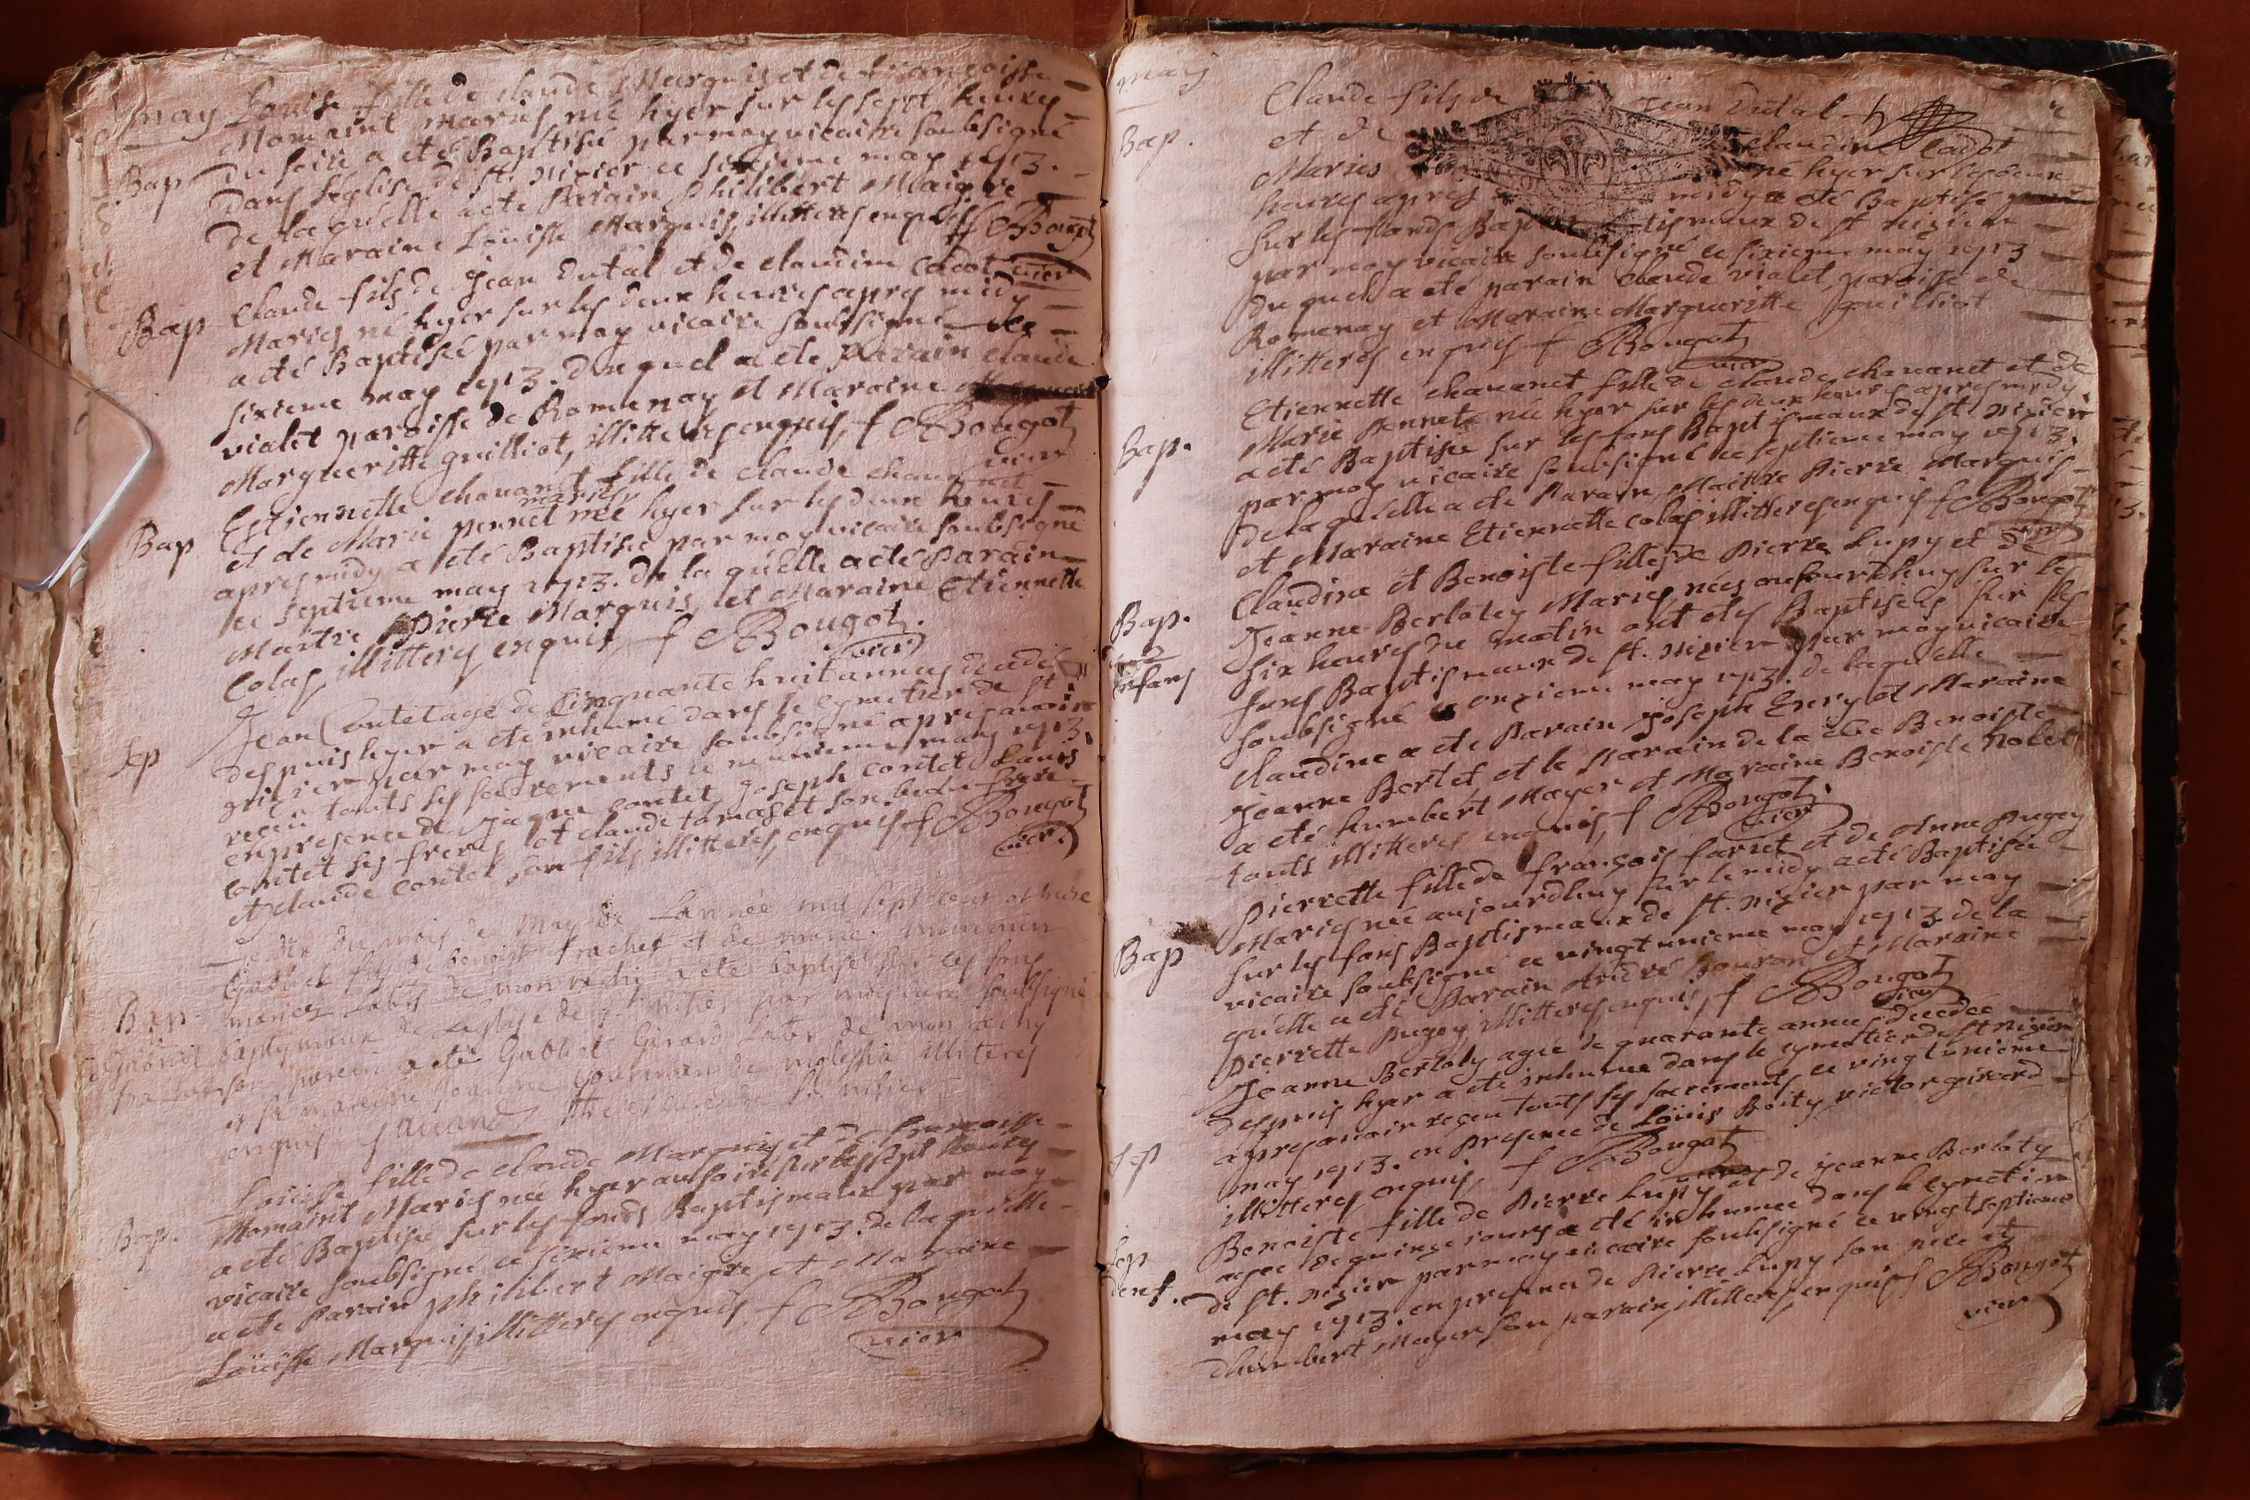 may Louise fille de claude Marquis et de françoisse
Momaint mariés, née hyer sur les sept heures
Bap du soire a eté Baptisé par moy vicaire soubsigné
dans l'eglise de st. nizier ce sixieme may 1713.
de laquelle a eté Parain philibert Maigre
et Maraine Loüisse Marquis, illitterés enquis f Bougot
vicr
Bap Claude fils de Jean dutal et de claudine Cadot
Mariés né hyer sur les deux heures apres midy
a eté Baptisé par moy vicaire soubsigné ce
sixieme may 1713. du quel a eté Parain claude
vialet paroisse de Romenay et Maraine
Margueritte guilliot, illitterés enquis, f Bougot
vicr
Bap Estiennette chavanet fille de claude chavanet
et de Marie pennet mariés née hyer sur les deux heures
apres midy a eté Baptisée par moy vicaire soubsigné
ce septieme may 1713. de la quelle a eté Parain
Maitre Pierre Marquis, et Maraine Etiennette
Colas, illitterés enquis, f Bougot.
vicr
Jean Contet agé de Cinquante huit années decedé
Sep despuis hyer a eté inhumé dans le cymetier de st
nizier par moy vicaire soubsigné apres avoir
receu touts ses sacrements ce neuvieme may 1713.
en presence de Jaque contet, Joseph contet Laurs
contet ses freres, et claude tomaset son beau frere
et claude contet son fils illitterés enquis f Bougot
vicr.
du mois de may de Lannée mil sept cent et treize
Gabriel fils de benoist trachet et de marie
Bap
Gabriel baptismaux de Leglise de st nisier par moy cure soubsigné
parain a eté Gabriel Girard
et sa maraine Jeanne illiteres
enquis
Louisse fille de claude Marquis et de francoisse
Momaint Mariés née hyer au soire sur les sept heures
Bap. a eté Baptisée sur les fonds Baptismaux par moy
vicaire soubsigné ce sixieme may 1713. de la quelle
a eté Parain philibert Maigre, et Maraine
Loüisse Marquis, illitterés enquis, f Bougot
vicr
may
Claude fils de Jean dutal
Bap. et de claudine Cadot
Mariés né hyer sur les deux
heures apres midy a eté Baptisé
sur les fonds Baptismaux de st nizier
par moy vicaire soubsigné ce sixieme may 1713
du quel a eté parain claude vialet paroisse de
Romenay et Maraine Margueritte guilliot
illitterés enquis f Bougot
vicr
Etiennette chavanet fille de claude chavanet et de
Marie pennet née hyer sur les deux heures apres midy
Bap. a eté Baptisée sur les fons Baptismaux de st. nizier
par moy vicaire soubsigné ce septieme may 1713.
de la quelle a eté Parain Maitre Pierre Marquis
et Maraine Etiennette colas illitterés enquis f Bougot
vicr
Claudine et Benoiste filles de Pierre Lupy et de
Bap. Jeanne Berlotey Mariés nées aujourdhuy sur les
six heures du matin ont etés Baptisées sur les
enfans fons Baptismaux de st. nizier par moy vicaire
soubsigné ce onzieme may 1713. de laquelle
claudine a eté Parain Joseph Enry et Maraine
Jeanne Bertet et le Parain de la Benoiste
a eté humbert Mayer et Maraine Benoiste nolet
touts illitterés enquis, f Bougot.
vicr
Pierrette fille de françois farnet et de Anne Pugey
Mariés née aujourdhuy sur le midy a eté Baptisée
Bap sur les fons Baptismaux de st. nizier par moy
vicaire soubsigné ce vingt unieme may 1713. de la
quelle a eté Parain André Bouron et Maraine
Pierrette Pugey, illitterés enquis, f Bougot
vicr
Jeanne Berloty agée de quarante années decedée
despuis hyer a eté inhumée dans le cymetier de st nizier
apres avoir receu touts ses sacrements ce vingt unieme
Sep may 1713. en presence de Loüis Boity, victor girard
illitterés enquis, f Bougot
vicr
Benoiste fille de Pierre Lupy et de Jeanne Berloty
Sep agée de quinze jours a eté inhumée dans le cymetier
denf. de st. nizier par moy vicaire soubsigné ce vingt septieme
may 1713. en presence de Pierre Lupy son pere et
dhumbert Mayer son parain illitterés enquis f Bougot
vicr